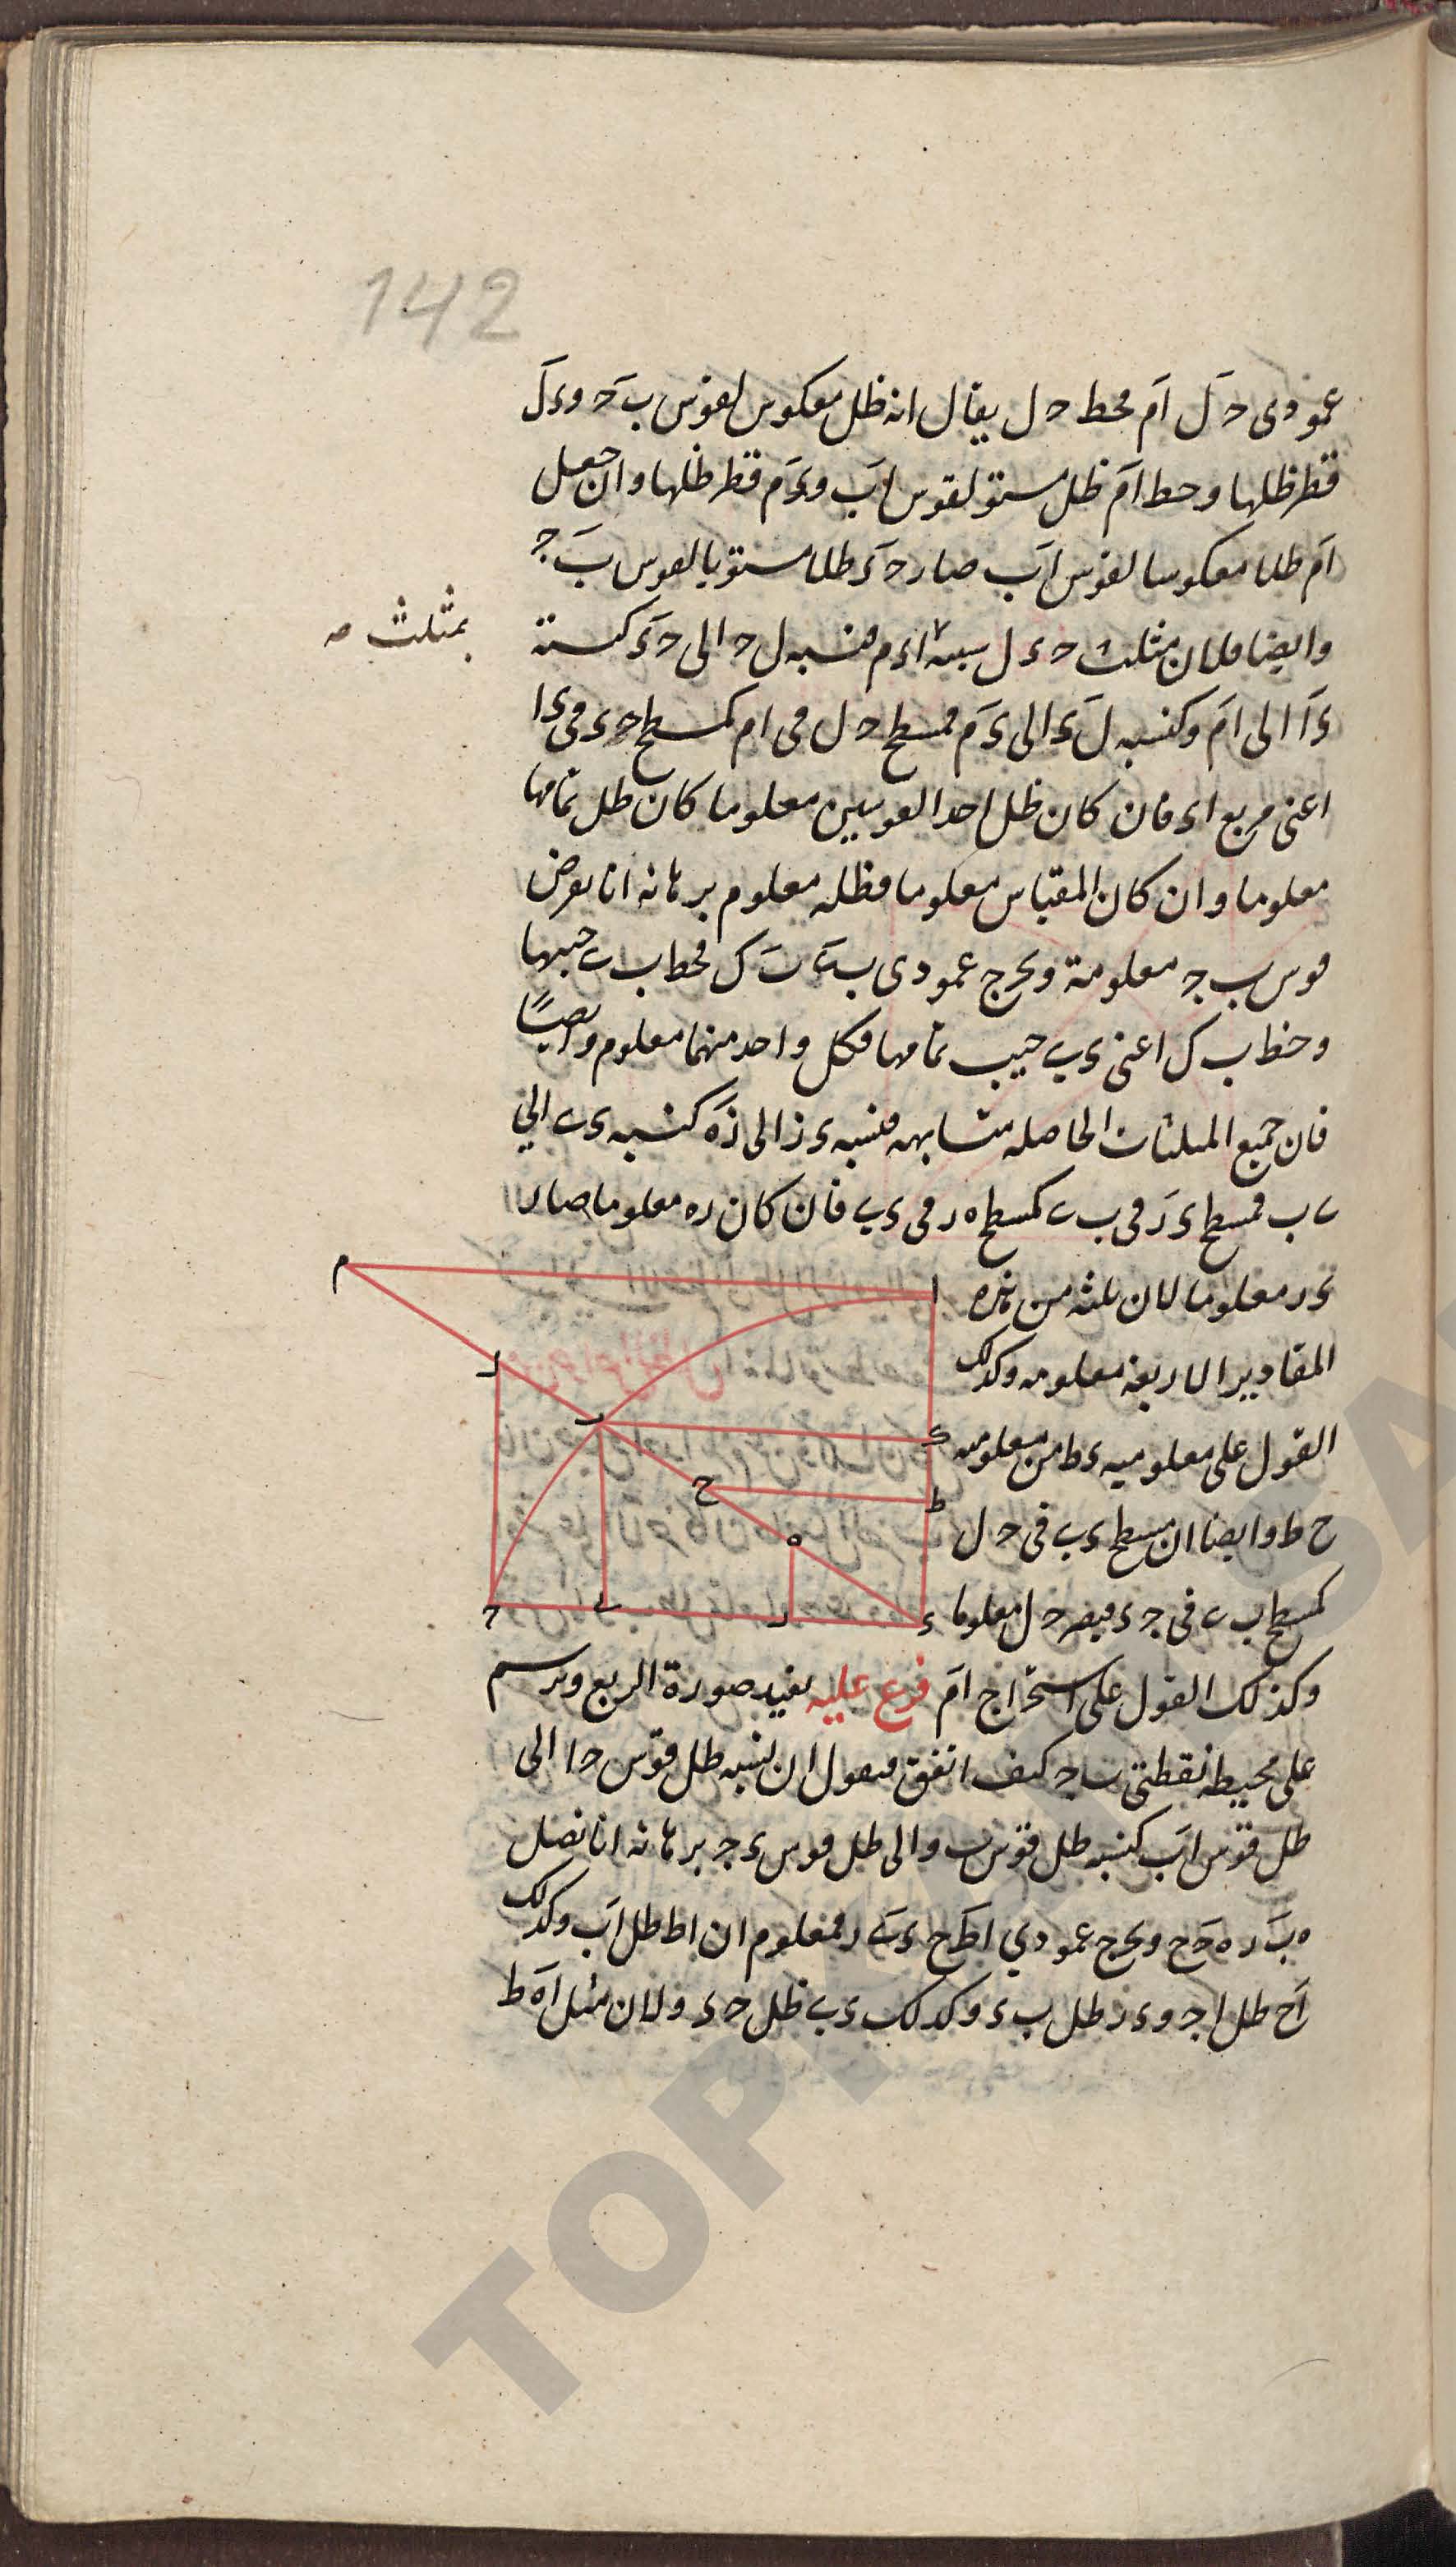 142
عمودى حـ ل ام فخط حـ ل يقال انه ظل معكوس لقوس ب حـ وء ل
قطر ظلها وخط ام ظل مستو لقوس اب وء م قطر ظلها وان جعل
ام ظلا معكوسا لقوس اب صار حـ ء ظلا مستويا لقوس ب جـ
وايضا فلان مثلث حـ ء ل شبيه اء م فنسبه ل حـ الى حـ ء كنسبة
بمثلث صـ
ء ا الى ام وكنسبه ل ء الى ء م فمسطح حـ ل فى ام كمسطح حـ ء فى ء ا
اعنى مربع اء فان كان ظل احد القوسين معلوما كان ظل تمامها
معلوما وان كان المقياس معلوما فظله معلوم برهانه انا نفرض
قوس ب جـ معلومة ونخرج عمودى ب ى ب ك فخط ب ى جيبها
وخط ب ك اعنى ء ى جيب تمامها فكل واحد منهما معلوم وايضًا
فان جميع المثلثات الحاصله متشابهه فنسبه ء ز الى زه كنسبه ء ى الى
ى ب فمسطح ء ز فى ب ى كمسطح ه ر فى ء ى فان كان ره معلوما صار
ء ر معلوما لان ثلثه من هذه
المقادير الاربعة معلومه وكذلك
القول على معلوميه ء ط من معلوميه
ح ط وايضا ان مسطح ء ى فى حـ ل
كمسطح ب ى فى جـ ء فيصير حـ ل معلوما
م
ا
ل
ب
ك
ح
ط
ه
حـ
ى
ر
ء
وكذلك القول على استخراج ام فرع عليه نعيد صورة الربع ونرسم
على محيطه نقطتى ب جـ كيف اتفق فنقول ان نسبه ظل قوس حـ ا الى
ظل قوس اب كنسبه ظل قوس ب ء الى ظل قوس ء جـ برهانه انا نصل
ه ب ر ه حـ ح ونخرج عمودي ا ط ح ء ى ر فمعلوم ان اط ظل اب وكذلك
اح ظل اجـ وء ر ظل ب ء وكذلك ء ى ظل حـ ء ولان مثل اه ط